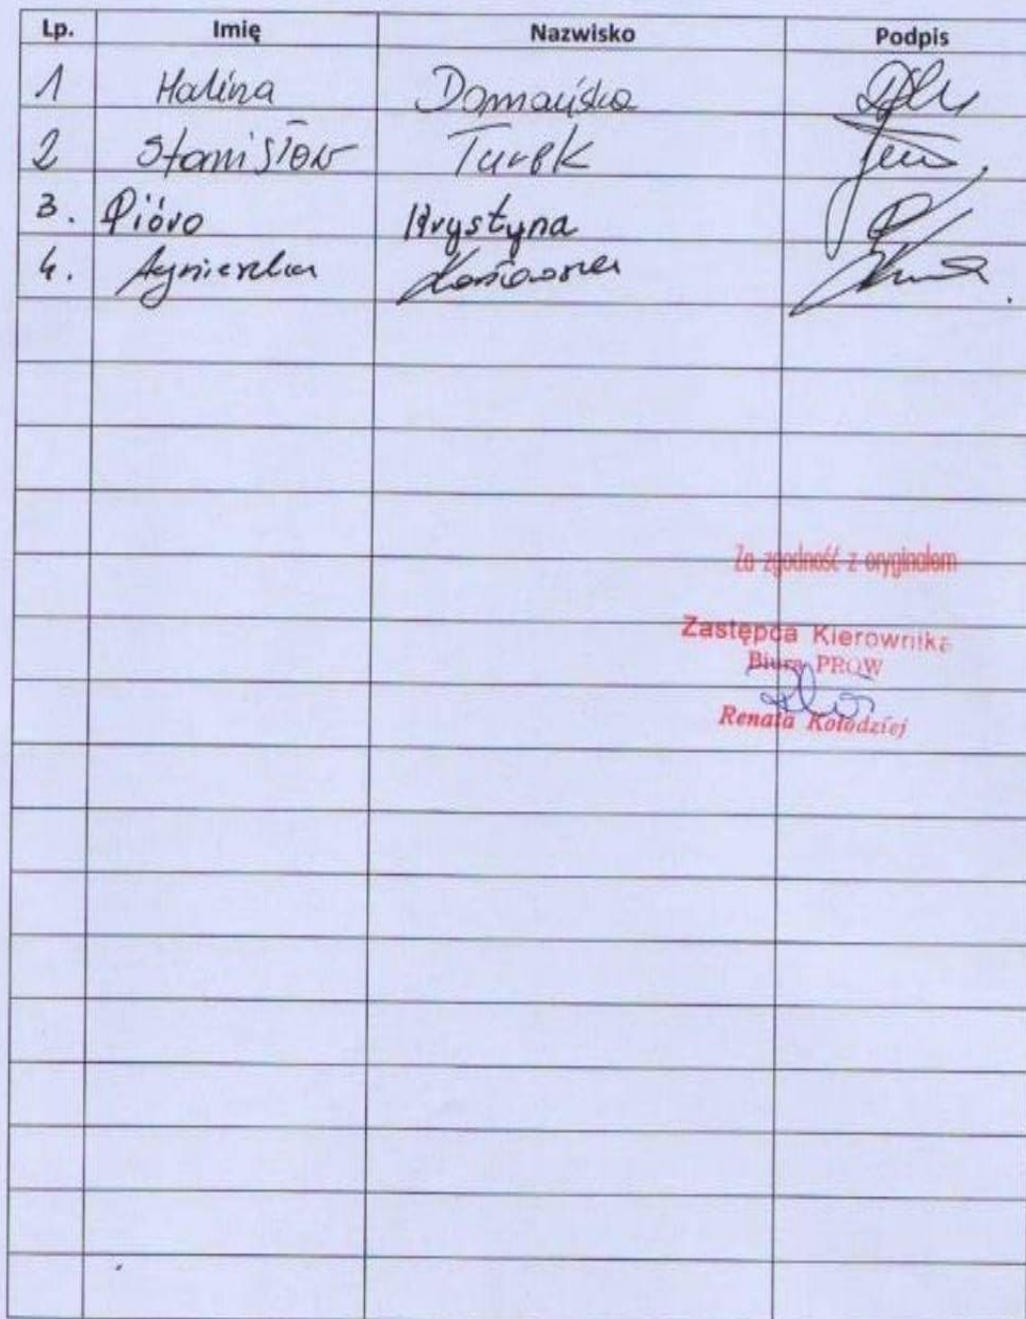 Lp. Imię Nazwisko Podpis
1 Halina Domańska
2 Stanisław Turek
3. Pióro Krystyna
4. Agnieszka
Za zgodność z oryginałem
Zastępca Kierownika
Biura PROW
Renata Kołodziej